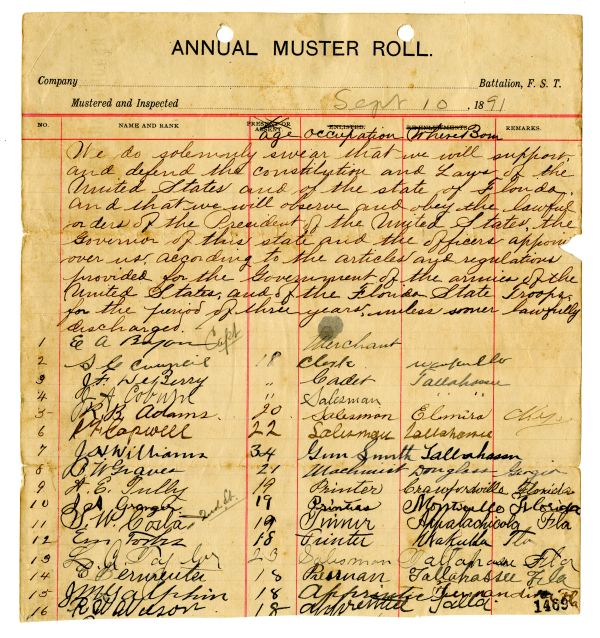 ANNUAL MUSTER ROLL.
Company Battalion, F. S. T.
Mustered and Inspected Sept 10, 1891
NO. NAME AND RANK PRESENT OR ABSENT. ENLISTED. REMARKS.
Age occupation Where Born
We do solemnly swear that we will support,
and defend the constitution and Laws of the
United States and of the state of Florida,
and that we will observe and obey the lawful
orders of the President of the United States, the
Governor of this state and the officers appoin
over us, according to the articles and regulations
provided for the Government of the armies of the
United States, and of the Florida State Troops,
for the period of three years, unless sooner lawfully
discharged.
1 E A Capt Merchant
2 S C Council 18 Clerk Wakulla
3 " Cadet Tallahassee
4 Coburn " Salesman " "
5 R B Adams. 20 Salesman Elmira
6 22 Salesman Tallahassee
7 J H Williams 34 Gun Smith Tallahassee
8 B W Graves 21 Machinist Douglass Georgia
9 E. Tully 19 Printer Crawfordville Florida
10 Granger 19 Monticello Florida
11 2nd Lt. 19 Apalachicola Fla
12 18 Printer Wakulla Fla
13 23 Salesman Tallahassee Flor
14 18 Tallahassee Fla
15 18 Apprentice Fernandina Fla
16 18 apprentice Talla
1469